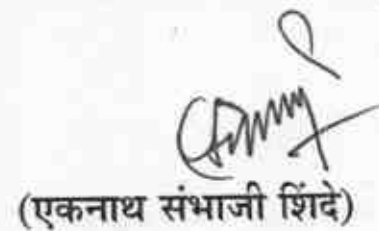 (एकनाथ संभाजी शिंदे)